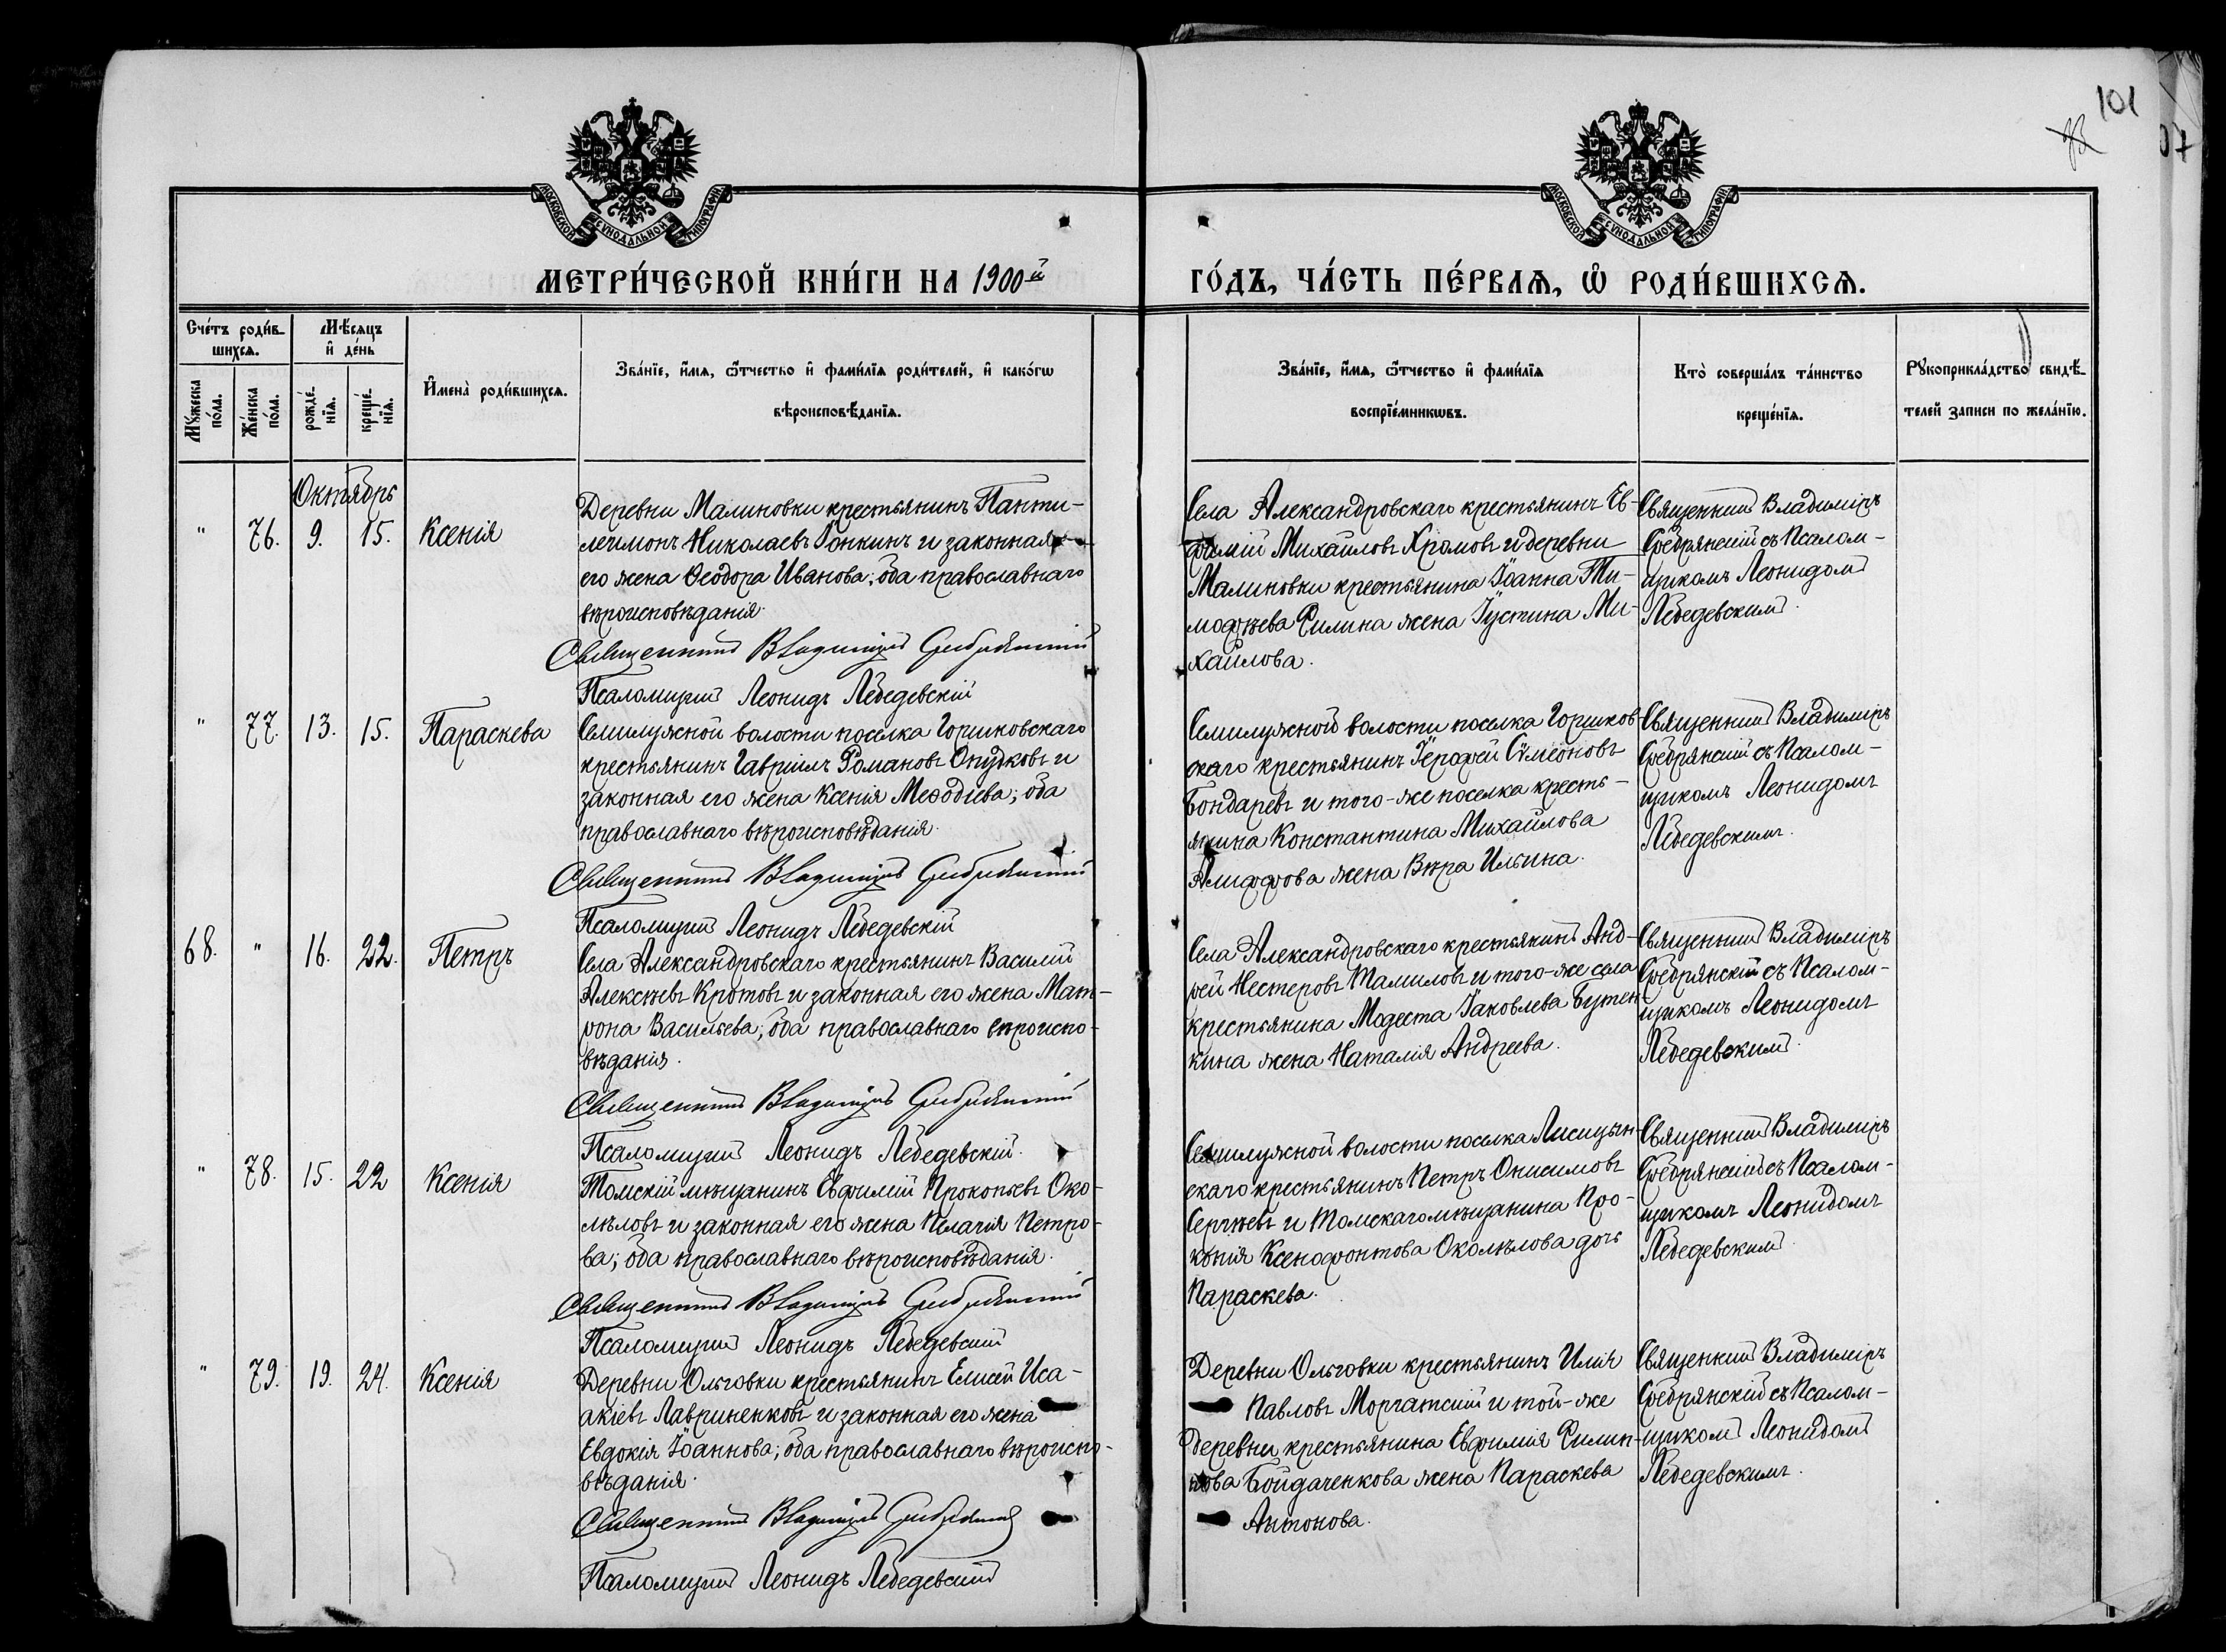 101
93
07
МОСКОВСКОЙ СѴНОДАЛЬНОЙ ТИПОГРАФІИ
МОСКОВСКОЙ СѴНОДАЛЬНОЙ ТИПОГРАФІИ
МЕТРИ́ЧЕСКОЙ КНИ́ГИ НА 1900й
ГО́ДЪ, ЧА́СТЬ ПЕ́РВАѦ, Ѡ҆ РОДИ́ВШИХСѦ.
Сче́тъ роди́в-
шихсѧ.
Мꙋ́жеска
по́ла.
Же́нска
по́ла.
Мѣ́сѧцъ
и҆ де́нь
рожде́-
нїѧ.
креще́-
нїѧ.
И҆мена̀ роди́вшихсѧ.
Зва́нїе, и҆́мѧ, ѻ҆́тчество и҆ фами́лїѧ роди́телей, и҆ како́гѡ
вѣроисповѣ́данїѧ.
Зва́нїе, и҆́мѧ, ѻ҆́тчество и҆ фами́лїѧ
воспрїе́мникѡвъ.
Кто̀ соверша́лъ та́инство
креще́нїѧ.
Рꙋкоприкла́дство свидѣ́-
телей записи по жела́нїю.
Октябрь
" 76. 9. 15. Ксенія
Деревни Малиновки крестьянинъ Панти-
леимонъ Николаевъ Гонкинъ и законная
его жена Ѳеодора Иванова; оба православнаго
вѣроисповѣданія.
Священникъ Владиміръ Сребрянскій
Псаломщикъ Леонидъ Лебедевскій
Села Александровскаго крестьянинъ Ев-
фимій Михаиловъ Хромовъ и деревни
Малиновки крестьянина Іоанна Ти-
мофѣева Филина жена Іустина Ми-
хаилова.
Священникъ Владиміръ
Сребрянскій съ Псалом-
щикомъ Леонидомъ
Лебедевскимъ.
" 77. 13. 15. Параскева
Семилужной волости поселка Горшковскаго
крестьянинъ Гавріилъ Романовъ Опудковъ и
законная его жена Ксенія Меѳодіева; оба
православнаго вѣроисповѣданія.
Священникъ Владиміръ Сребрянскій
Псаломщикъ Леонидъ Лебедевскій
Семилужной волости поселка Горшков-
скаго крестьянинъ Іерофей Сѵмеоновъ
Бондаревъ и того-же поселка кресть-
янина Константина Михаилова
Алиффова жена Вѣра Ильина.
Священникъ Владиміръ
Сребрянскій съ Псалом-
щикомъ Леонидомъ
Лебедевскимъ.
68. " 16. 22. Петръ
Села Александровскаго крестьянинъ Василій
Алексѣевъ Кротовъ и законная его жена Мат-
рона Васильева; оба православнаго вѣроиспо-
вѣданія.
Священникъ Владиміръ Сребрянскій
Псаломщикъ Леонидъ Лебедевскій.
Села Александровскаго крестьянинъ Анд-
рей Нестеровъ Томиловъ и того-же села
крестьянина Модеста Іаковлева Бутен-
кина жена Наталія Андреева.
Священникъ Владиміръ
Сребрянскій съ Псалом-
щикомъ Леонидомъ
Лебедевскимъ.
" 78. 15. 22 Ксенія
Томскій мѣщанинъ Евфимій Прокопьевъ Око-
лѣловъ и законная его жена Пелагія Петро-
ва; оба православнаго вѣроисповѣданія.
Священникъ Владиміръ Сребрянскій
Псаломщикъ Леонидъ Лебедевскій
Семилужной волости поселка Лисицын-
скаго крестьянинъ Петръ Онисимовъ
Сергѣевъ и Томскаго мѣщанина Про-
копія Ксенофонтова Околѣлова дочь
Параскева.
Священникъ Владиміръ
Сребрянскій съ Псалом-
щикомъ Леонидомъ
Лебедевскимъ.
" 79. 19. 24. Ксенія
Деревни Ольговки крестьянинъ Елисей Иса-
акіевъ Лавриненковъ и законная его жена
Евдокія Іоаннова; оба православнаго вѣроиспо-
вѣданія.
Священникъ Владиміръ Сребрянскій
Псаломщикъ Леонидъ Лебедевскій
Деревни Ольговки крестьянинъ Илія
Павловъ Моргатскій и той-же
деревни крестьянина Евфимія Филип-
пова Бойдаченкова жена Параскева
Антонова.
Священникъ Владиміръ
Сребрянскій съ Псалом-
щикомъ Леонидомъ
Лебедевскимъ.